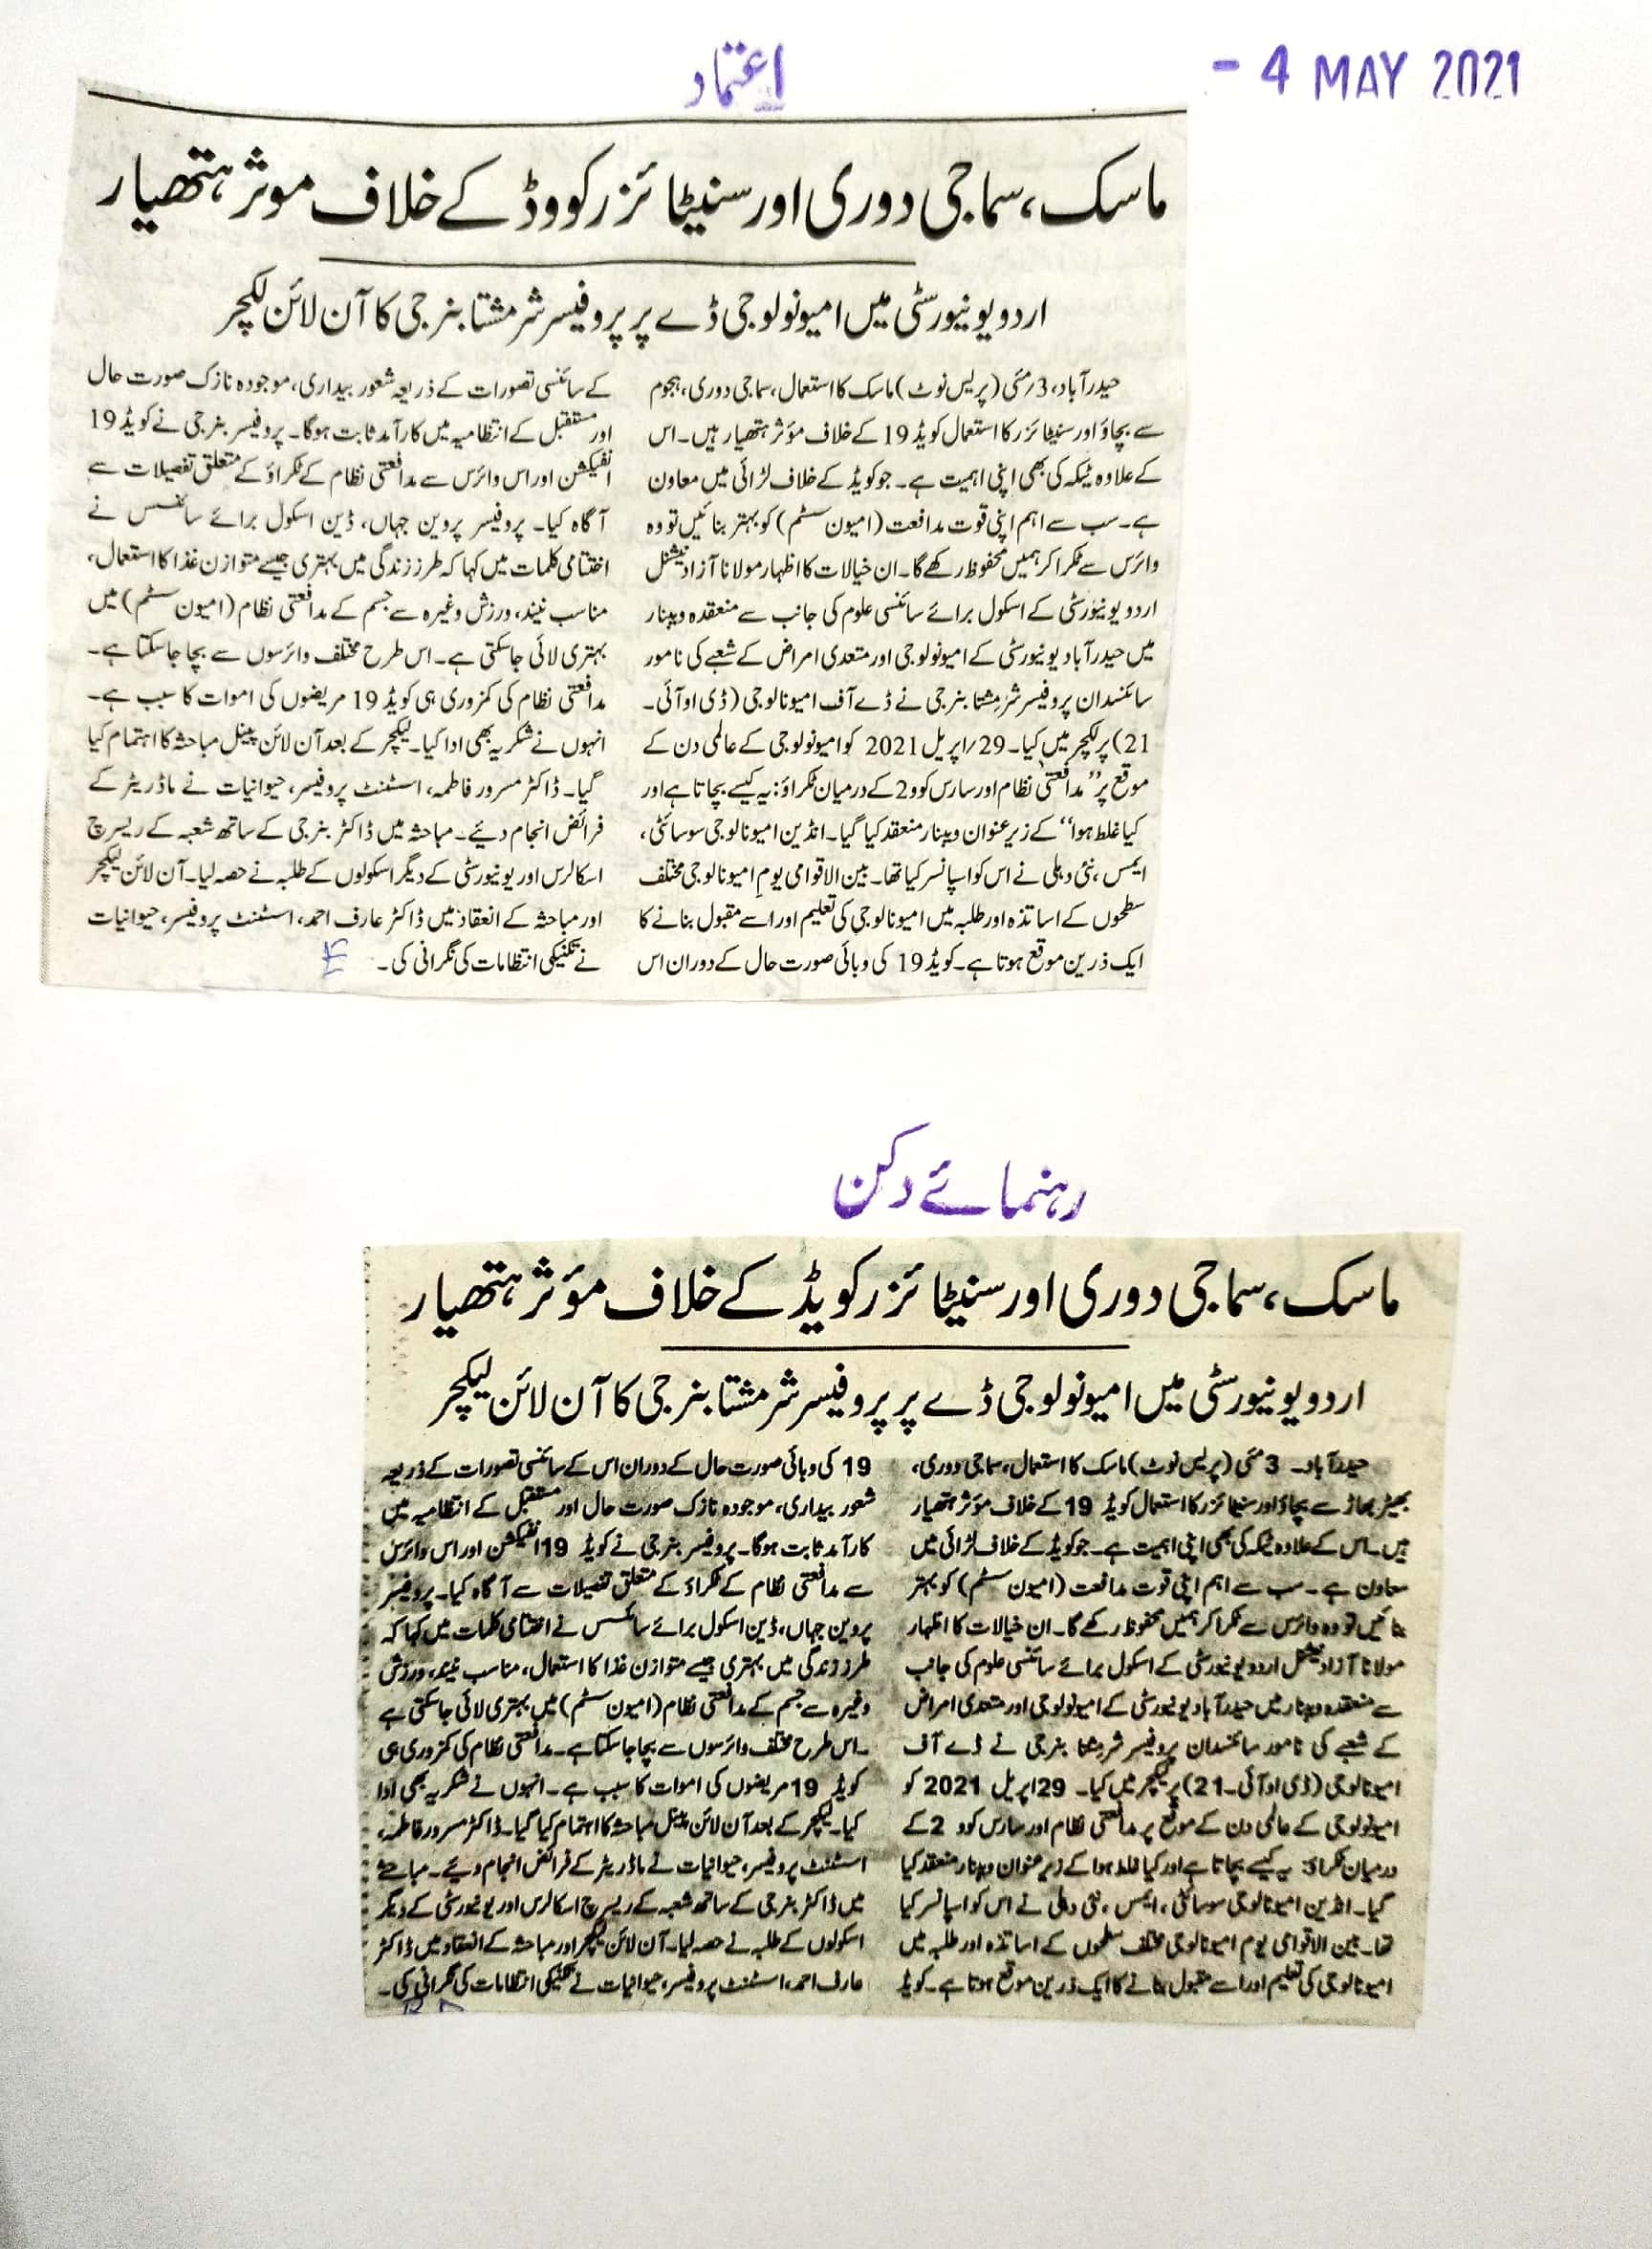 اعتماد
- 4 MAY 2021
ماسک، سماجی دوری اور سنیٹائزر کووڈ کے خلاف موثر ہتھیار
اردو یونیورسٹی میں امیونولوجی ڈے پر پروفیسر شرمشتا بنرجی کا آن لائن لکچر
حیدرآباد، 3؍مئی (پریس نوٹ) ماسک کا استعمال، سماجی دوری، ہجوم
سے بچاؤ اور سنیٹائزر کا استعمال کویڈ 19 کے خلاف مؤثر ہتھیار ہیں۔ اس
کے علاوہ ٹیکہ کی بھی اپنی اہمیت ہے۔ جو کویڈ کے خلاف لڑائی میں معاون
ہے۔ سب سے اہم اپنی قوت مدافعت (امیون سسٹم) کو بہتر بنائیں تو وہ
وائرس سے ٹکرا کر ہمیں محفوظ رکھے گا۔ ان خیالات کا اظہار مولانا آزاد نیشنل
اردو یونیورسٹی کے اسکول برائے سائنسی علوم کی جانب سے منعقدہ ویبنار
میں حیدرآباد یونیورسٹی کے امیونولوجی اور متعدی امراض کے شعبے کی نامور
سائنسدان پروفیسر شرمشتا بنرجی نے ڈے آف امیونالوجی (ڈی او آئی۔
21) پر لکچر میں کیا۔ 29؍اپریل 2021 کو امیونولوجی کے عالمی دن کے
موقع پر ”مدافعتی نظام اور سارس کوو2 کے درمیان ٹکراؤ: یہ کیسے بچاتا ہے اور
کیا غلط ہوا“ کے زیر عنوان ویبنار منعقد کیا گیا۔ انڈین امیونالوجی سوسائٹی،
ایمس، نئی دہلی نے اس کو اسپانسر کیا تھا۔ بین الاقوامی یومِ امیونالوجی مختلف
سطحوں کے اساتذہ اور طلبہ میں امیونالوجی کی تعلیم اور اسے مقبول بنانے کا
ایک ذرین موقع ہوتا ہے۔ کویڈ 19 کی وبائی صورت حال کے دوران اس
کے سائنسی تصورات کے ذریعہ شعور بیداری، موجودہ نازک صورت حال
اور مستقبل کے انتظامیہ میں کارآمد ثابت ہوگا۔ پروفیسر بنرجی نے کویڈ 19
انفیکشن اور اس وائرس سے مدافعتی نظام کے ٹکراؤ کے متعلق تفصیلات سے
آگاہ کیا۔ پروفیسر پروین جہاں، ڈین اسکول برائے سائنسس نے
اختتامی کلمات میں کہا کہ طرز زندگی میں بہتری جیسے متوازن غذا کا استعمال،
مناسب نیند، ورزش وغیرہ سے جسم کے مدافعتی نظام (امیون سسٹم) میں
بہتری لائی جاسکتی ہے۔ اس طرح مختلف وائرسوں سے بچا جاسکتا ہے۔
مدافعتی نظام کی کمزوری ہی کویڈ 19 مریضوں کی اموات کا سبب ہے۔
انہوں نے شکریہ بھی ادا کیا۔ لیکچر کے بعد آن لائن پینل مباحثہ کا اہتمام کیا
گیا۔ ڈاکٹر مسرور فاطمہ، اسسٹنٹ پروفیسر، حیوانیات نے ماڈریٹر کے
فرائض انجام دیئے۔ مباحثہ میں ڈاکٹر بنرجی کے ساتھ شعبہ کے ریسرچ
اسکالرس اور یونیورسٹی کے دیگر اسکولوں کے طلبہ نے حصہ لیا۔ آن لائن لیکچر
اور مباحثہ کے انعقاد میں ڈاکٹر عارف احمد، اسسٹنٹ پروفیسر، حیوانیات
نے تکنیکی انتظامات کی نگرانی کی۔
رہنمائے دکن
ماسک، سماجی دوری اور سنیٹائزر کویڈ کے خلاف مؤثر ہتھیار
اردو یونیورسٹی میں امیونولوجی ڈے پر پروفیسر شرمشتا بنرجی کا آن لائن لیکچر
حیدرآباد۔ 3 مئی (پریس نوٹ) ماسک کا استعمال، سماجی دوری،
بھیڑ بھاڑ سے بچاؤ اور سنیٹائزر کا استعمال کویڈ 19 کے خلاف مؤثر ہتھیار
ہیں۔ اس کے علاوہ ٹیکہ کی بھی اپنی اہمیت ہے۔ جو کویڈ کے خلاف لڑائی میں
معاون ہے۔ سب سے اہم اپنی قوت مدافعت (امیون سسٹم) کو بہتر
بنائیں تو وہ وائرس سے ٹکرا کر ہمیں محفوظ رکھے گا۔ ان خیالات کا اظہار
مولانا آزاد نیشنل اردو یونیورسٹی کے اسکول برائے سائنسی علوم کی جانب
سے منعقدہ ویبنار میں حیدرآباد یونیورسٹی کے امیونولوجی اور متعدی امراض
کے شعبے کی نامور سائنسدان پروفیسر شرمشتا بنرجی نے ڈے آف
امیونالوجی (ڈی او آئی۔21) پر لیکچر میں کیا۔ 29 اپریل 2021 کو
امیونولوجی کے عالمی دن کے موقع پر مدافعتی نظام اور سارس کوو 2 کے
درمیان ٹکراؤ: یہ کیسے بچاتا ہے اور کیا غلط ہوا کے زیر عنوان ویبنار منعقد کیا
گیا۔ انڈین امیونالوجی سوسائٹی، ایمس، نئی دہلی نے اس کو اسپانسر کیا
تھا۔ بین الاقوامی یوم امیونالوجی مختلف سطحوں کے اساتذہ اور طلبہ میں
امیونالوجی کی تعلیم اور اسے مقبول بنانے کا ایک ذرین موقع ہوتا ہے۔ کویڈ
19 کی وبائی صورت حال کے دوران اس کے سائنسی تصورات کے ذریعہ
شعور بیداری، موجودہ نازک صورت حال اور مستقبل کے انتظامیہ میں
کارآمد ثابت ہوگا۔ پروفیسر بنرجی نے کویڈ 19 انفیکشن اور اس وائرس
سے مدافعتی نظام کے ٹکراؤ کے متعلق تفصیلات سے آگاہ کیا۔ پروفیسر
پروین جہاں، ڈین اسکول برائے سائنسس نے اختتامی کلمات میں کہا کہ
طرز زندگی میں بہتری جیسے متوازن غذا کا استعمال، مناسب نیند، ورزش
وغیرہ سے جسم کے مدافعتی نظام (امیون سسٹم) میں بہتری لائی جاسکتی ہے
۔اس طرح مختلف وائرسوں سے بچا جاسکتا ہے۔ مدافعتی نظام کی کمزوری ہی
کویڈ 19 مریضوں کی اموات کا سبب ہے۔ انہوں نے شکریہ بھی ادا
کیا۔ لیکچر کے بعد آن لائن پینل مباحثہ کا اہتمام کیا گیا۔ ڈاکٹر مسرور فاطمہ،
اسسٹنٹ پروفیسر، حیوانیات نے ماڈریٹر کے فرائض انجام دیئے۔ مباحثے
میں ڈاکٹر بنرجی کے ساتھ شعبہ کے ریسرچ اسکالرس اور یونیورسٹی کے دیگر
اسکولوں کے طلبہ نے حصہ لیا۔ آن لائن لیکچر اور مباحثہ کے انعقاد میں ڈاکٹر
عارف احمد، اسسٹنٹ پروفیسر، حیوانیات نے تکنیکی انتظامات کی نگرانی کی۔